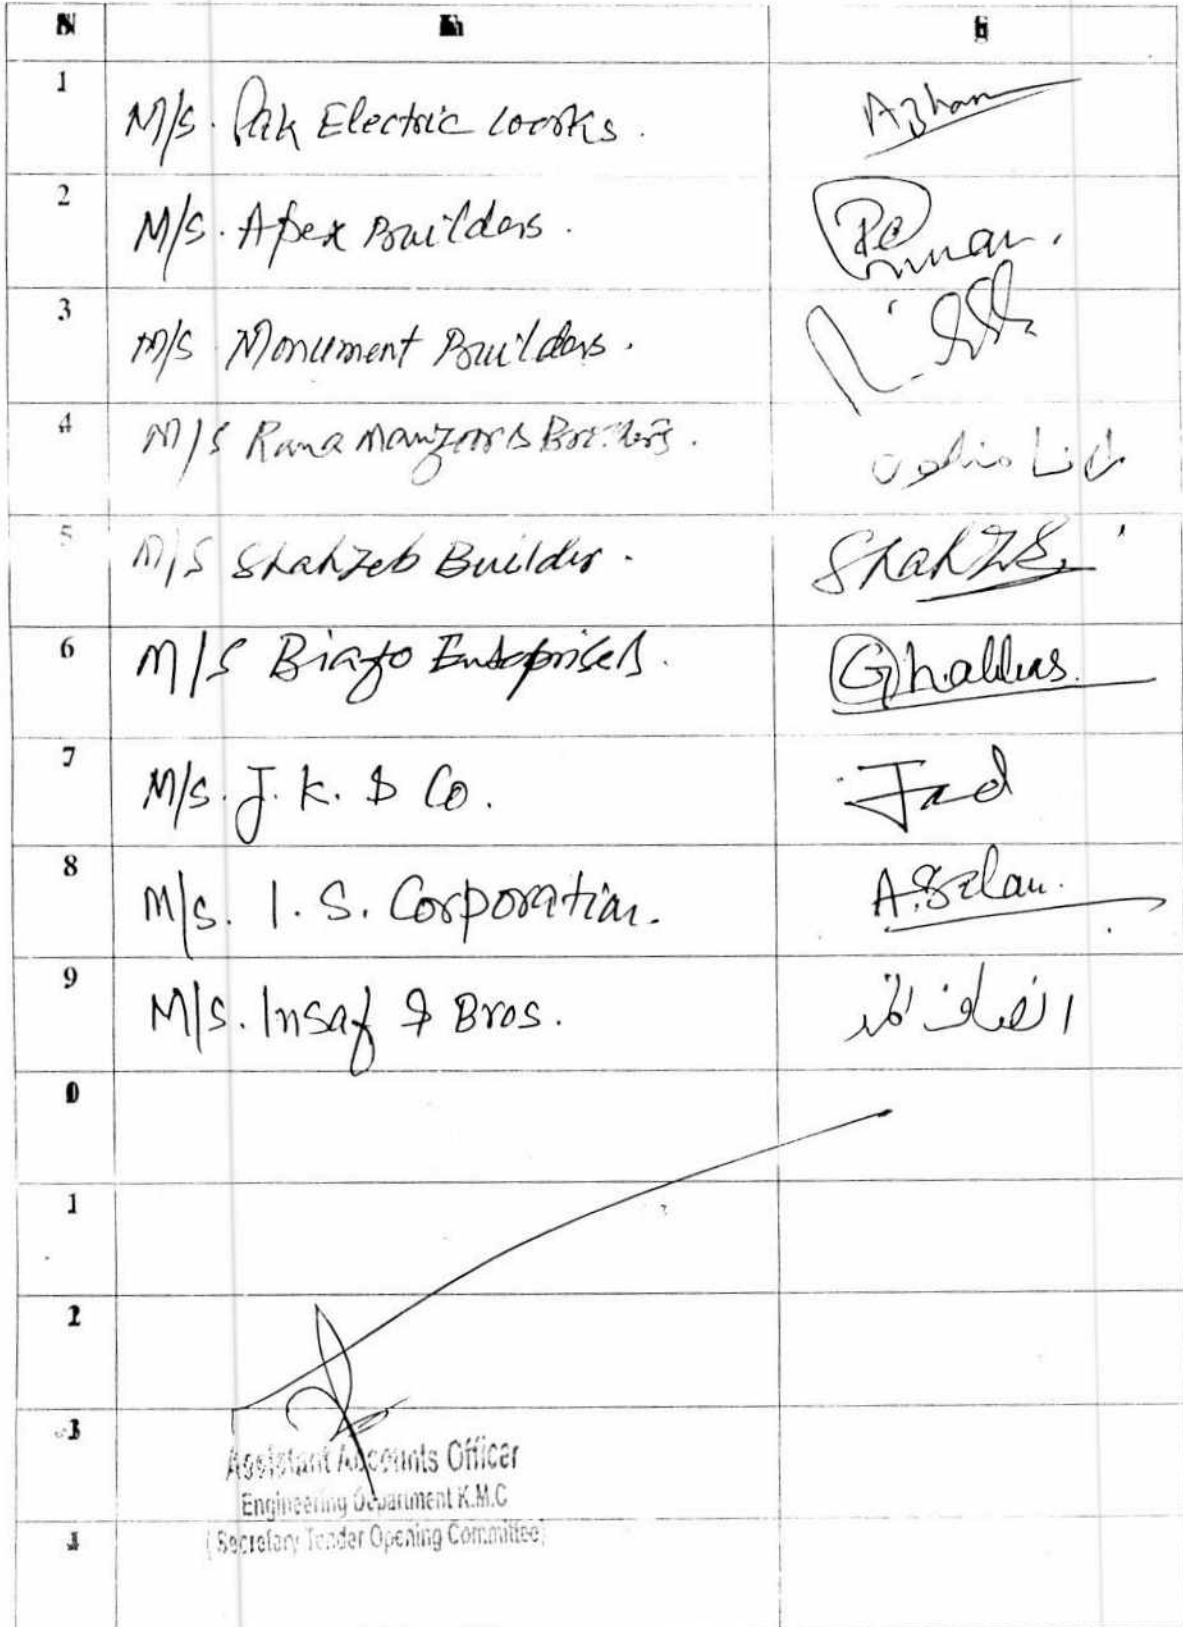 1
M/S. Pak Electric Works.
Azhar
2
M/S. Apex Builders.
3
M/S Monument Builders.
4
M/S Rana Manzoor & Brothers.
رانا منظور
5
M/S Shahzeb Builder.
6
M/S Enterprises.
7
M/S. J. K. & Co.
8
M/S. I. S. Corporation.
9
M/S. Insaf & Bros.
انصاف
0
1
2
3
Assistant Accounts Officer
Engineering Department K.M.C
(Secretary Tender Opening Committee)